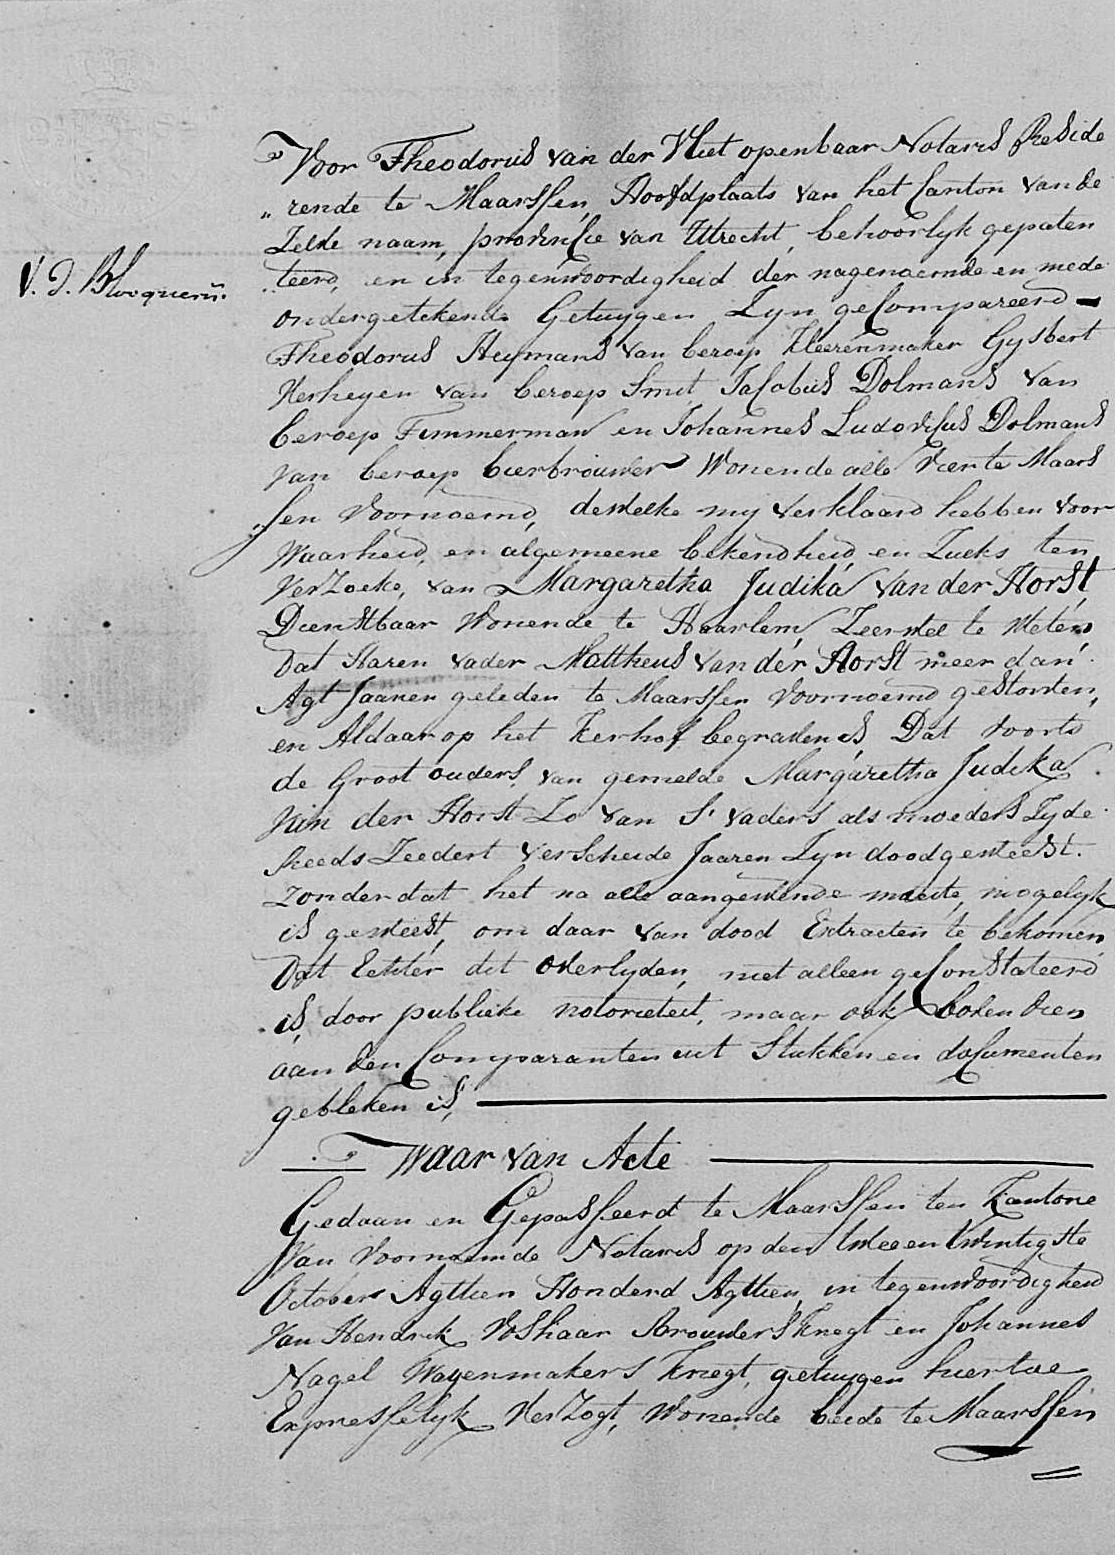 Voor Theodorus van der Vliet openbaar Notaris Reside
„ rende te Maarssen, Hoofdplaats van het Canton van de
Zelve naam, provinsie van Uttrecht, behoorlyk gepaten
„ teerd, en in tegenwoordigheid der nagenoemde en mede
V. d.
ondergetekende Getuygen Zyn geCompareerd —
Theodorus Heymans van beroep Kleerenmaker Gysbert
Verheyen van beroep Smit, Jacobus Dolmans van
beroep Timmerman en Johannes Ludovicus Dolmans
van beroep bierbrouwer Wonende alle Vier te Maars
„ sen Voornoemd, dewelke my verklaard hebben voor
Waarheid, en algemeene bekendheid, en Zucks ten
VerZoeke, van Margaretha Judika van der Horst,
Dienstbaar Wonende te Haarlem, Zeer wel te Weten
Dat Haren vader Mattheus van der Horst meer dan
Agt Jaaren geleden te Maarssen Voornoemd gestorven,
en Aldaar op het Kerhof begraven is, Dat voorts
de Groot ouders van gemelde Margaretha Judika
van der Horst Zo van S' vaders als moeders Zyde
Reeds Zeedert verscheide Jaaren Zyn dood geweest.
Zonder dat het na alle aangewende moeite, mogelyk
is geweest, om daar van dood Extracten te bekomen
Dat Echter dit overlyden, niet alleen geConstateerd
is, door publieke notorieteit, maar ook boven dien
aan den Comparanten uit Stukken en documenten
gebleken is,
Waar van Acte
Gedaan en Gepasseerd te Maarssen ten Kantore
van Voornoemde Notaris op den twee en twintigste
October Agttien Honderd Agttien, in tegenwoordigheid
van Hendrik Voshaar Brouwers Knegt en Johannes
Nagel Wagenmakers Knegt, getuygen hier toe
Expresselyk VerZogt, Wonende beede te Maarssen